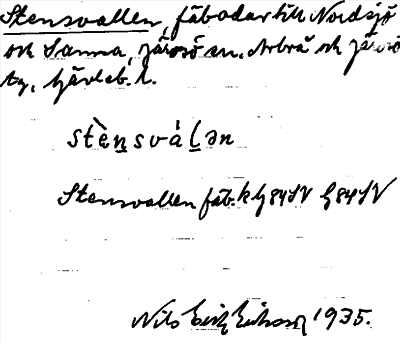 Stensvallen, fäbodar till Nordsjö
och Sanna, Järvsö sn. Arbrå och Järvsö
tg, Gävleb. l.
stènsválən
Stensvallen fäb. k G84SV G84SV
Nils Erik Eriksson 1935.